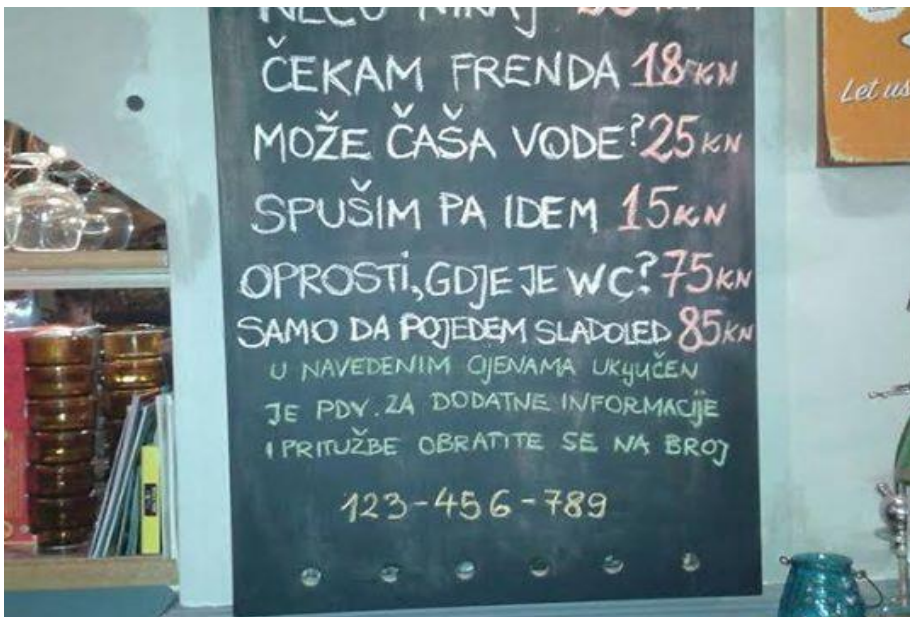 ČEKAM FRENDA 18 KN
MOŽE ČAŠA VODE? 25 KN
SPUŠIM PA IDEM 15 KN
OPROSTI, GDJE JE WC? 75 KN
SAMO DA POJEDEM SLADOLED 85 KN
U NAVEDENIM CIJENAMA UKYUČEN
JE PDV. ZA DODATNE INFORMACIJE
I PRITUŽBE OBRATITE SE NA BROJ
123-456-789
Let us